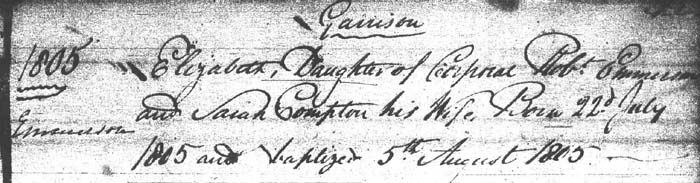 Garrison
1805 Elizabeth, Daughter of Corporal Robt. Emmerson
Emmerson and Sarah Compton his Wife, Born 22d July
1805 and baptized 5th August 1805